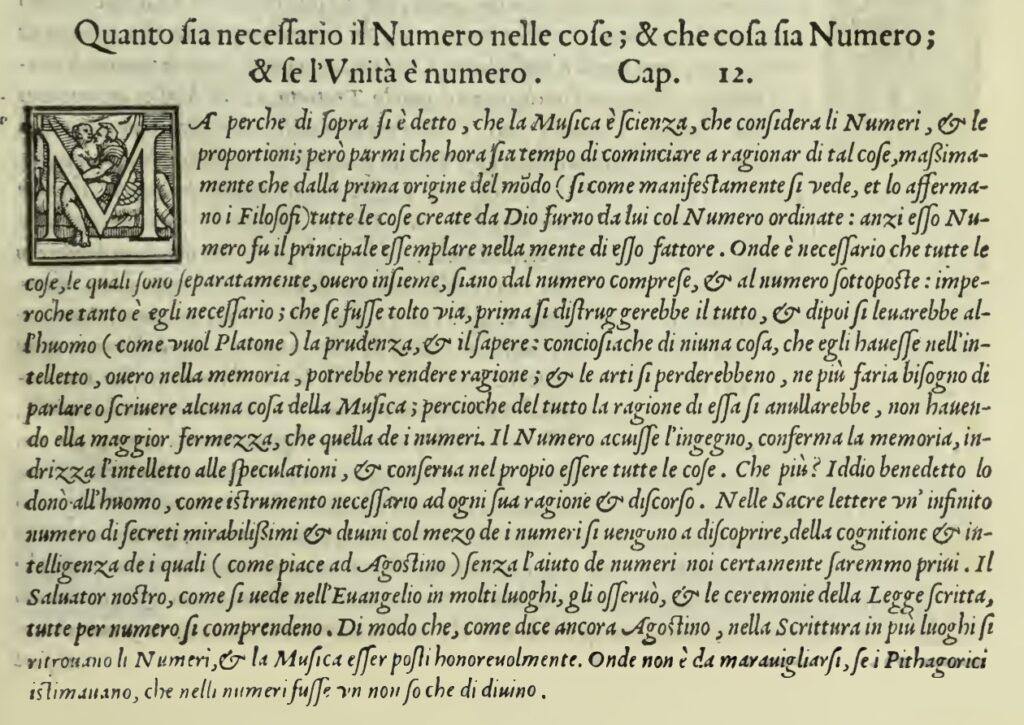 Quanto ſia neceſſario il Numero nelle coſe; & che coſa ſia Numero;
& ſe l'Vnità è numero. Cap. 12.
MA perche di ſopra ſi è detto, che la Muſica è ſcienza, che conſidera li Numeri, & le
proportioni; però parmi che hora ſia tempo di cominciare a ragionar di tal coſe, maßima-
mente che dalla prima origine del mõdo (ſi come manifeſtamente ſi vede, et lo afferma-
no i Filoſofi) tutte le coſe create da Dio furno da lui col Numero ordinate: anzi eſſo Nu-
mero fu il principale eſſemplare nella mente di eſſo fattore. Onde è neceſſario che tutte le
coſe, le quali ſono ſeparatamente, ouero inſieme, ſiano dal numero compreſe, & al numero ſottopoſte: impe-
roche tanto è egli neceſſario; che ſe fuſſe tolto via, prima ſi diſtruggerebbe il tutto, & dipoi ſi leuarebbe al-
l'huomo (come vuol Platone) la prudenza, & il ſapere: concioſiache di niuna coſa, che egli haueſſe nell'in-
telletto, ouero nella memoria, potrebbe rendere ragione; & le arti ſi perderebbeno, ne più faria biſogno di
parlare o ſcriuere alcuna coſa della Muſica; percioche del tutto la ragione di eſſa ſi anullarebbe, non hauen-
do ella maggior fermezza, che quella de i numeri. Il Numero acuiſſe l'ingegno, conferma la memoria, in-
drizza l'intelletto alle ſpeculationi, & conſerua nel propio eſſere tutte le coſe. Che più? Iddio benedetto lo
donò all'huomo, come iſtrumento neceſſario ad ogni ſua ragione & diſcorſo. Nelle Sacre lettere vn' infinito
numero di ſecreti mirabilißimi & diuini col mezo de i numeri ſi uengono a diſcoprire, della cognitione & in-
telligenza de i quali (come piace ad Agoſtino) ſenza l'aiuto de numeri noi certamente ſaremmo priui. Il
Saluator noſtro, come ſi uede nell'Euangelio in molti luoghi, gli oſſeruò, & le ceremonie della Legge ſcritta,
tutte per numero ſi comprendeno. Di modo che, come dice ancora Agoſtino, nella Scrittura in più luoghi ſi
ritrouano li Numeri, & la Muſica eſſer poſti honoreuolmente. Onde non è da marauigliarſi, ſe i Pithagorici
iſtimauano, che nelli numeri fuſſe vn non ſo che di diuino.